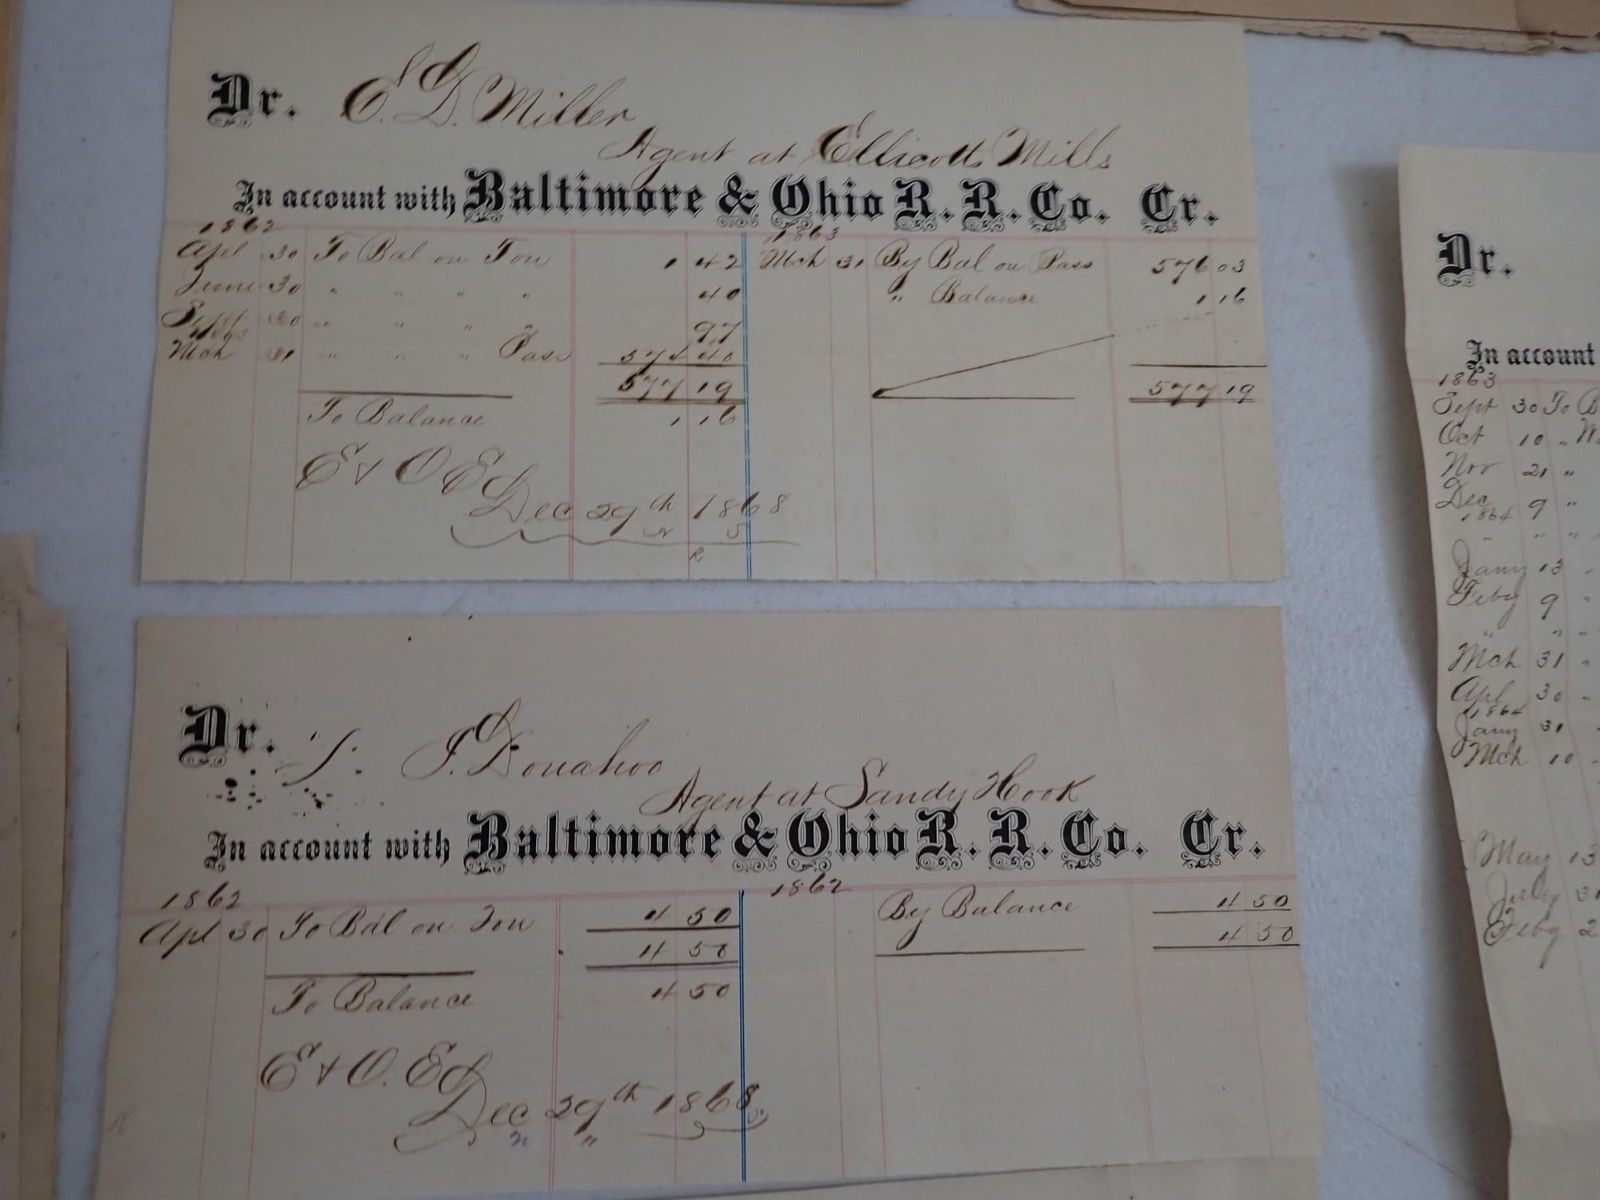 Dr. E. D. Miller
Agent at Ellicotts Mills
In account with Baltimore & Ohio R. R. Co. Cr.
1862 1863
Apl 30 To Bal on Ton 1 42 Mch 31 By Bal on Pass 576 03
June 30 " " " " 40 " Balance 1 16
Sept 30 " " " " 97
1863
Mch 31 " " " Pass 574 40
577 19 577 19
To Balance 1 16
E & O Ed
Dec 29th 1868
Dr. J. Donahoo
Agent at Sandy Hook
In account with Baltimore & Ohio R. R. Co. Cr.
1862 1862
Apl 30 To Bal on Ton 4 50 By Balance 4 50
4 50 4 50
To Balance 4 50
E & O. Ed
Dec 29th 1868
Dr.
In account
1863
Sept 30 To B
Oct 10 "
Nov 21 "
Dec 9 "
1864
" " "
Jany 13 "
Feby 9 "
" " "
Mch 31 "
Apl 30 "
1864
Jany 31 "
Mch 10 "
May 13
July 31
Feby 2